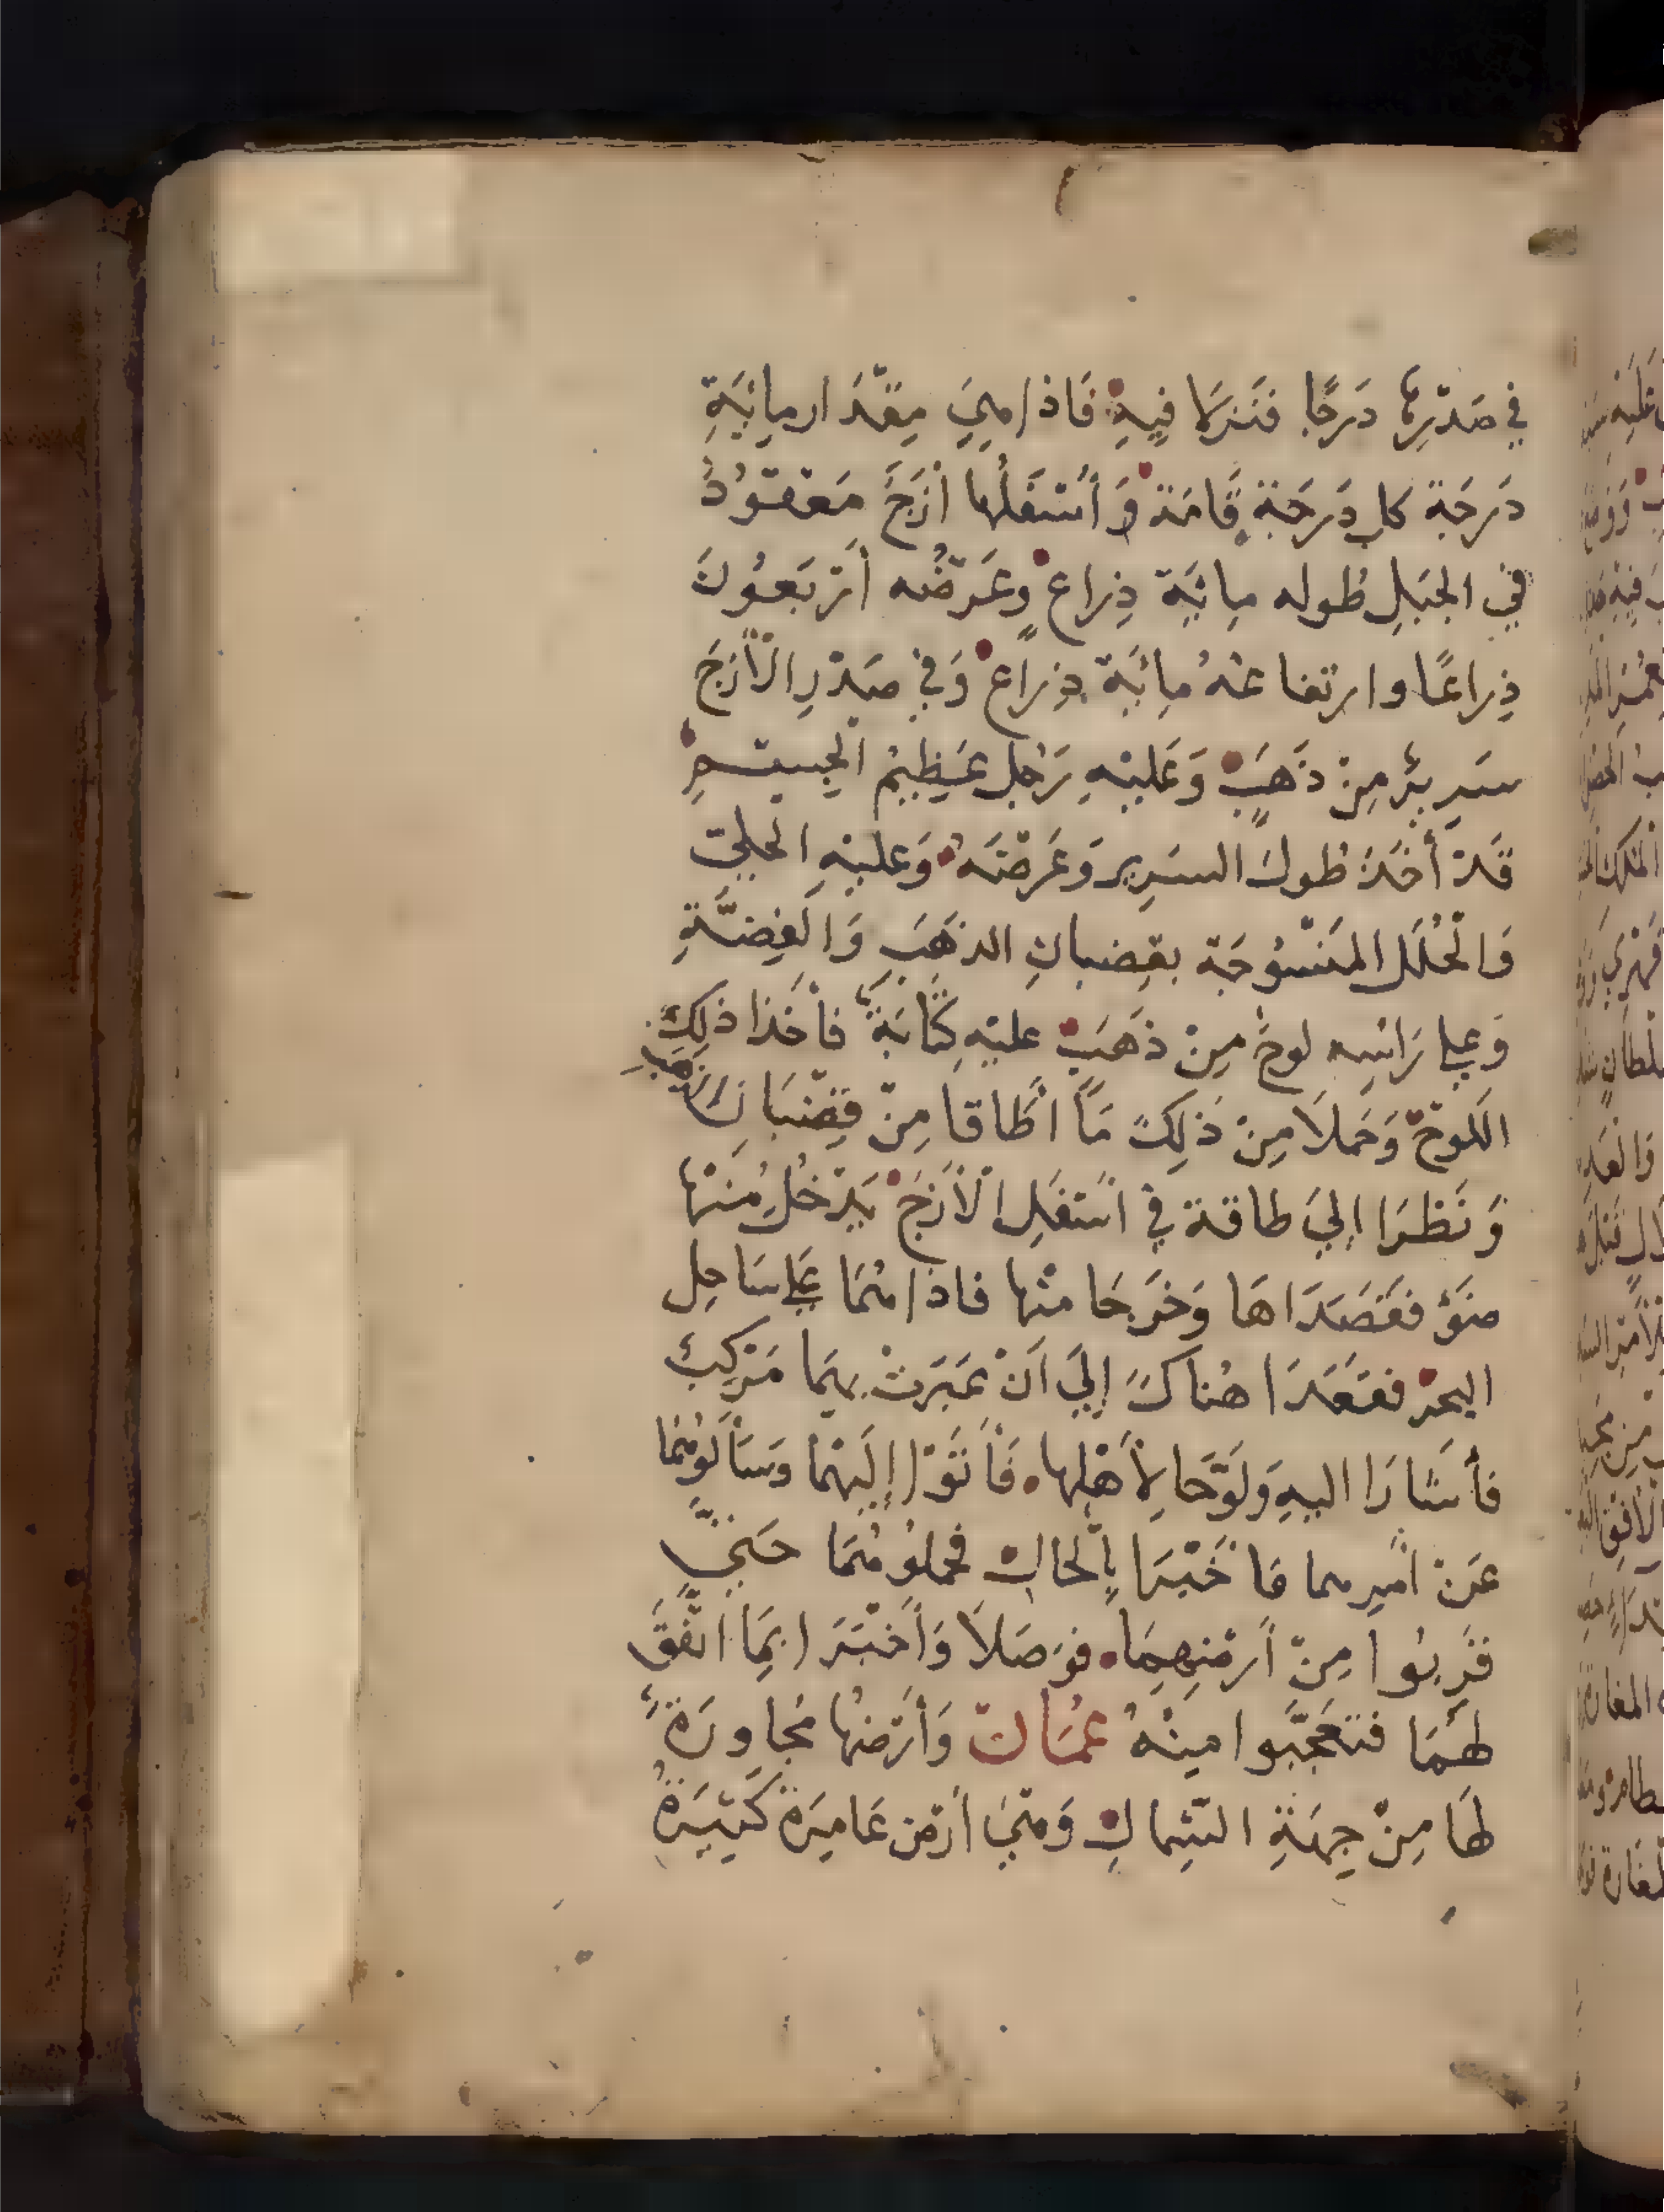 في صَدْرِهِ دَرَجًا فَنَزَلَا فِيهِ فَاذَا هِيَ مِقْدَار مِائَةِ
دَرَجَة كل دَرَجَة قَامَة وَأَسْفَلُها أَزَجٌ مَعْقُودٌ
في الجَبَلِ طُوله مِائَة ذِراعٍ وعَرْضُه أَرْبَعُونَ
ذِراعًا وارتفاعُهُ مِائَة ذِرَاعٍ وَفي صَدْرِ الْأَزَجَ
سَرِيرٌ مِنْ ذَهَبٍ وَعَلَيْهِ رَجُل عَظِيمُ الْجِسْمِ
قَدْ أَخَذَ طُولَ السَرِير وَعَرْضَه وَعليْهِ الْحلِيّ
وَالْحُلَل المَنْسُوجَة بقِضبانِ الذهَبِ وَالْفِضَّةِ
وَعلى رَاسِه لوحٌ مِنْ ذَهَبٍ عليْهِ كِتَابَةٌ فأخَذا ذلِكَ
اللَوْحَ وَحَملَا مِنْ ذَلِكَ مَا اطَاقا مِنْ قِضْبَانِ الذَهَبِ
وَنَظَرَا إِلىَ طاقة في اسْفَلِ الْأَزَجَ يَدْخُلُ مِنْهَا
ضَوْءٌ فقَصَدَاهَا وَخَرَجَا مِنْها فاذا هُمَا عَلى سَاحِل
البحْر فقَعَدَا هُناكَ إِلىَ اَنْ عَبَرَتْ بِهِمَا مَرْكِبٌ
فأشَارَا اليهِ وَلَوَّحَا لِأَهْلِها فَأَتَوْا إِلَيْهِمَا وَسَأَلُوهُمَا
عَنْ امْرِهما فَاخْبَرَا بِالْحالِ فحملُوهُمَا حَتىَّ
قَرِبُوا مِنْ أَرْضِهِمَا فوَصَلَا وَأَخْبَرَا بِمَا اتَّفَقَ
لَهُمَا فتعَجَّبوا مِنْهُ عُمَان وَأَرْضُها مُجاوِرَةٌ
لهَا مِنْ جِهَةِ الشِّمالِ وَهْيَ أرْض عَامِرَة كَثِيرَةُ